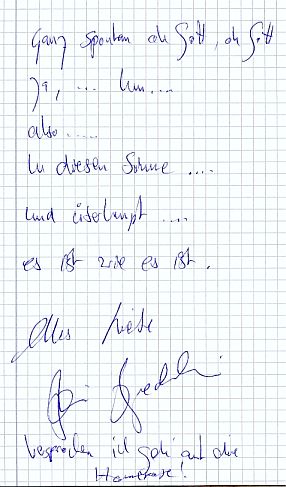 Ganz spontan oh Gott, oh Gott
ja, ... hm...
also .....
In diesem Sinne ....
und überhaupt ....
es ist wie es ist.
Alles Liebe
Versprochen ich geh' auf die
Homepage!